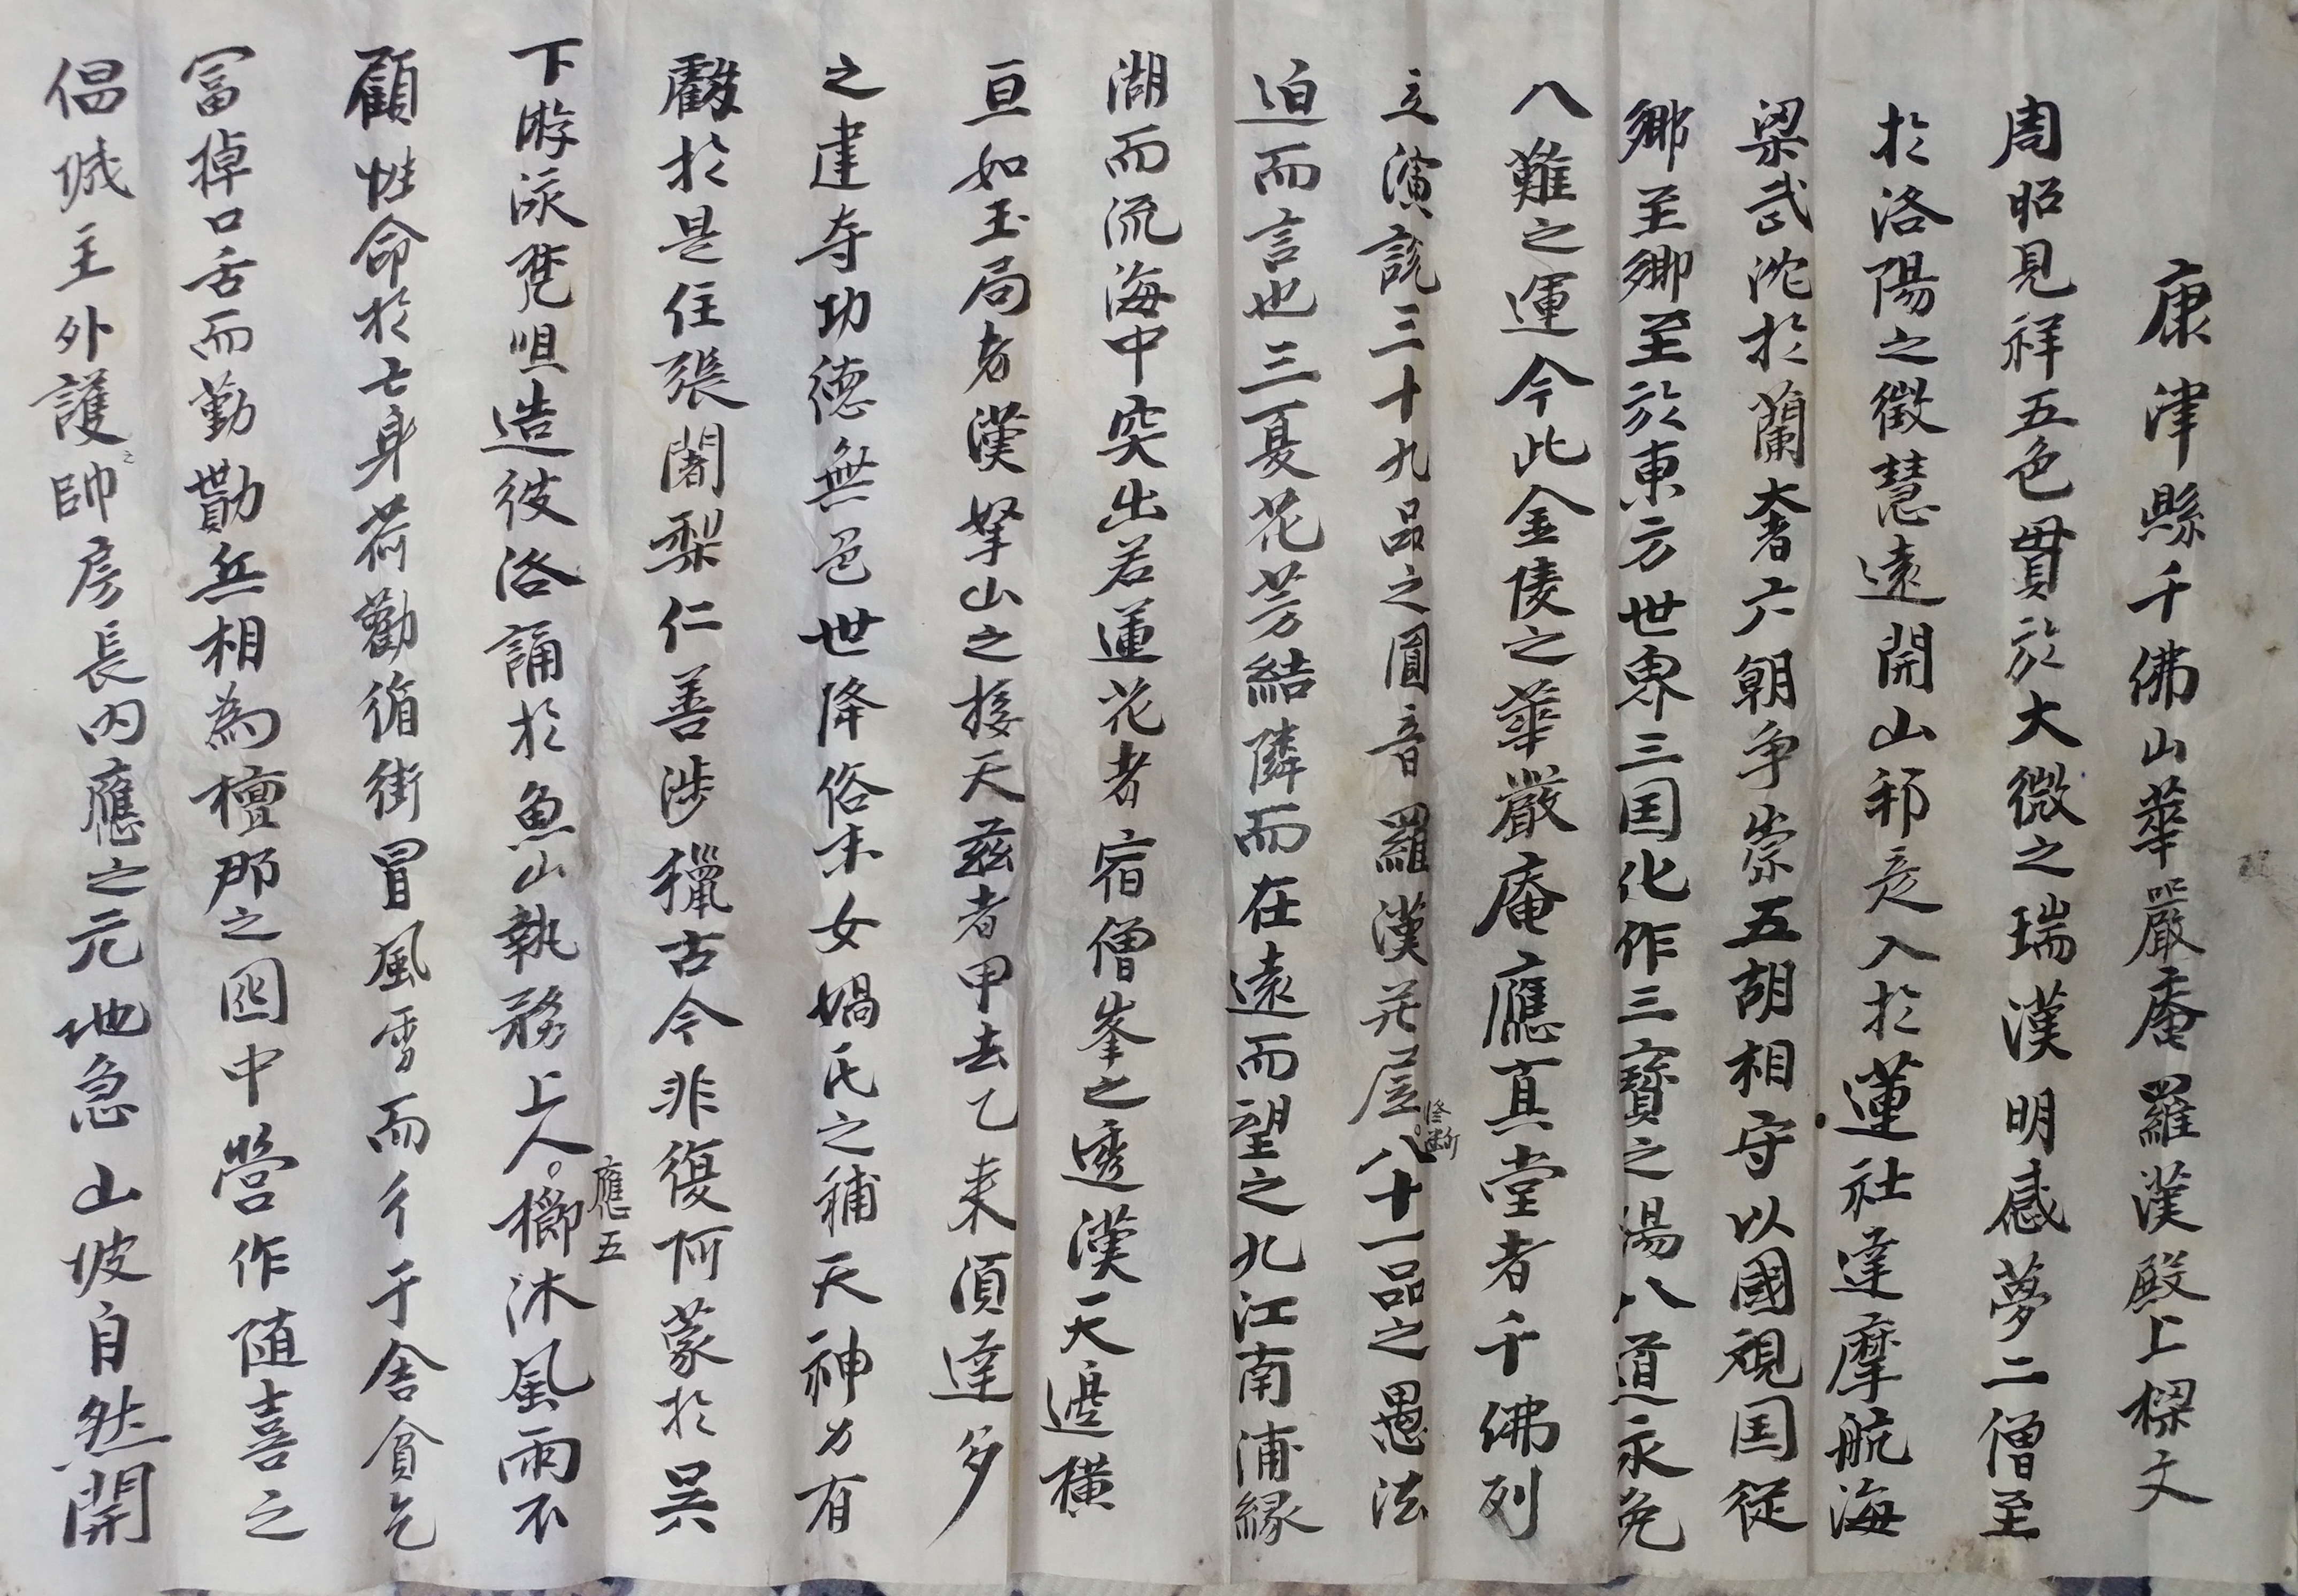 康津縣千佛山華嚴庵羅漢殿上樑文
周昭見祥五色貫於大微之瑞漢明感夢二僧至
於洛陽之徵慧遠開山邪㝎入於蓮社達摩航海
梁武沈於蘭奢六朝爭崇五胡相守以國視囯從
鄉至鄉至於東方世界三囯化作三寶之湯八道永免
八難之運今此金陵之華嚴庵應真堂者千佛列
立演説三十九品之圓音羅漢並居八十一品之愚法
修断
迫而言也三夏花芳結隣而在遠而望之九江南浦緣
湖而流海中突出若蓮花者宿僧峯之邃漢天邊橫
亘如玉局者漢拏山之接天茲者甲去乙来湏達多
之建寺功德無邑世降俗末女媧氏之補天神力有
虧於是住張闍梨仁善涉獵古今非復阿蒙於吳
下游泳梵唄造彼洛誦於魚山執務上人櫛沐風雨不
應五
顧性命於七身荷勸循街冒風雪而行于舍貧乞
富掉口舌而勤勩無相為檀那之囮中營作随喜之
倡城主外護之帥房長內應之元地急山坡自然開